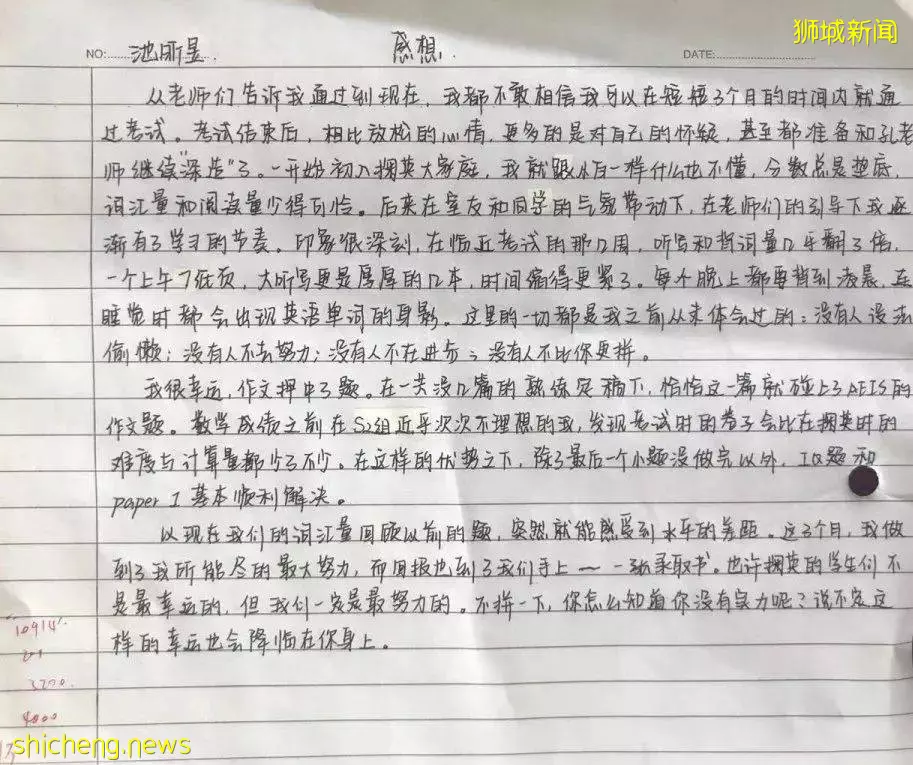 狮城新闻
NO: 池昕昱. 感想. DATE:
从老师们告诉我通过到现在,我都不敢相信我可以在短短3个月的时间内就通
过考试。考试结束后,相比放松的心情,更多的是对自己的怀疑,甚至都准备和孔老
师继续"深造"了。一开始初入拥英大家庭,我就跟小白一样什么也不懂,分数总是垫底,
词汇量和阅读量少得可怜。后来在室友和同学的气氛带动下,在老师们的引导下我逐
渐有了学习的节奏。印象很深刻,在临近考试的那几周,听写和背词量几乎翻了倍,
一个上午7张页,大听写更是厚厚的几本,时间缩得更紧了。每个晚上都要背到凌晨,连
睡觉时都会出现英语单词的身影。这里的一切都是我之前从未体会过的:没有人说去
偷懒;没有人不去努力;没有人不在进步;没有人不比你更拼。
我很幸运,作文押中了题。在一共没几篇的熟练定稿下,恰恰这一篇就碰上了AEIS的
作文题。数学成绩之前在S2组近乎次次不理想的我,发现考试时的卷子会比在拥英时的
难度与计算量都少了不少。在这样的优势之下,除了最后一个小题没做完以外,IQ题和
paper 1 基本顺利解决。
以现在我们的词汇量回顾以前的题,突然就能感受到水平的差距。这3个月,我做
到了我所能尽的最大努力,而回报也到了我们手上——一张录取书。也许拥英的学生们不
是最幸运的,但我们一定是最努力的。不拼一下,你怎么知道你没有实力呢?说不定这
样的幸运也会降临在你身上。
10914
3200.
4000
shicheng.news